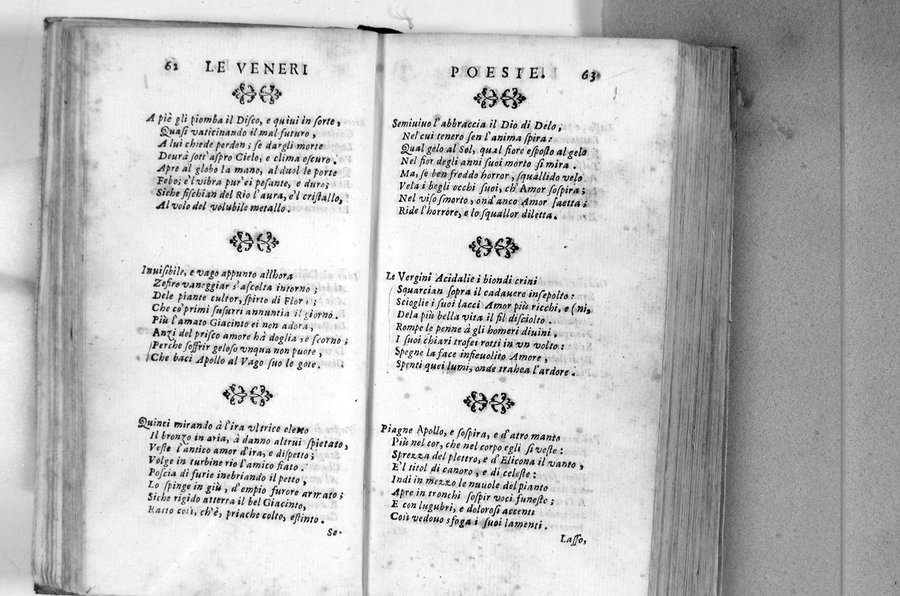 62 LE VENERI
A piè gli piomba il Disco, e quiui in sorte,
Quasi vaticinando il mal futuro,
A lui chiede perdon; se dargli morte
Deurà sott'aspro Cielo, e clima oscuro.
Apre al globo la mano, al duol le porte
Febo; e'l vibra pur'ei pesante, e duro;
Siche fischian del Rio l'aura, e'l cristallo,
Al volo del volubile metallo.
Inuisibile, e vago appunto allhora
Zefiro vaneggiar s'ascolta intorno;
Dele piante cultor, spirto di Flora;
Che co' primi susurri annuntia il giorno.
Più l'amato Giacinto ei non adora,
Anzi del prisco amore hà doglia, e scorno;
Perche soffrir geloso vnqua non puote,
Che baci Apollo al Vago suo le gote.
Quinci mirando à l'ira vltrice eletto
Il bronzo in aria, à danno altrui spietato,
Veste l'antico amor d'ira, e dispetto;
Volge in turbine rio l'amico fiato.
Poscia di furie inebriando il petto,
Lo spinge in giù, d'empio furore armato;
Siche rigido atterra il bel Giacinto,
Ratto così, ch'è, pria che colto, estinto.
Se-
POESIE. 63
Semiuiuo l'abbraccia il Dio di Delo;
Nel cui tenero sen l'anima spira:
Qual gelo al Sol, qual fiore esposto al gelo
Nel fior degli anni suoi morto si mira.
Ma, se ben freddo horror, squallido velo
Vela i begli occhi suoi, ch'Amor sospira;
Nel viso smorto, ond'anco Amor saetta;
Ride l'horrore, e lo squallor diletta.
Le Vergini Acidalie i biondi crini
Squarcian sopra il cadauere insepolto:
Scioglie i suoi lacci Amor più ricchi, e (ni,
Dela più bella vita il fil disciolto.
Rompe le penne à gli homeri diuini,
I suoi chiari trofei rotti in vn volto:
Spegne la face infieuolito Amore,
Spenti quei lumi, onde trahea l'ardore.
Piagne Apollo, e sospira, e d'atro manto
Più nel cor, che nel corpo egli si veste:
Sprezza del plettro, e d'Elicona il vanto,
E'l titol di canoro, e di celeste:
Indi in mezzo le nuuole del pianto
Apre in tronchi sospir voci funeste;
E con lugubri, e dolorosi accenti
Così vedouo sfoga i suoi lamenti.
Lasso,